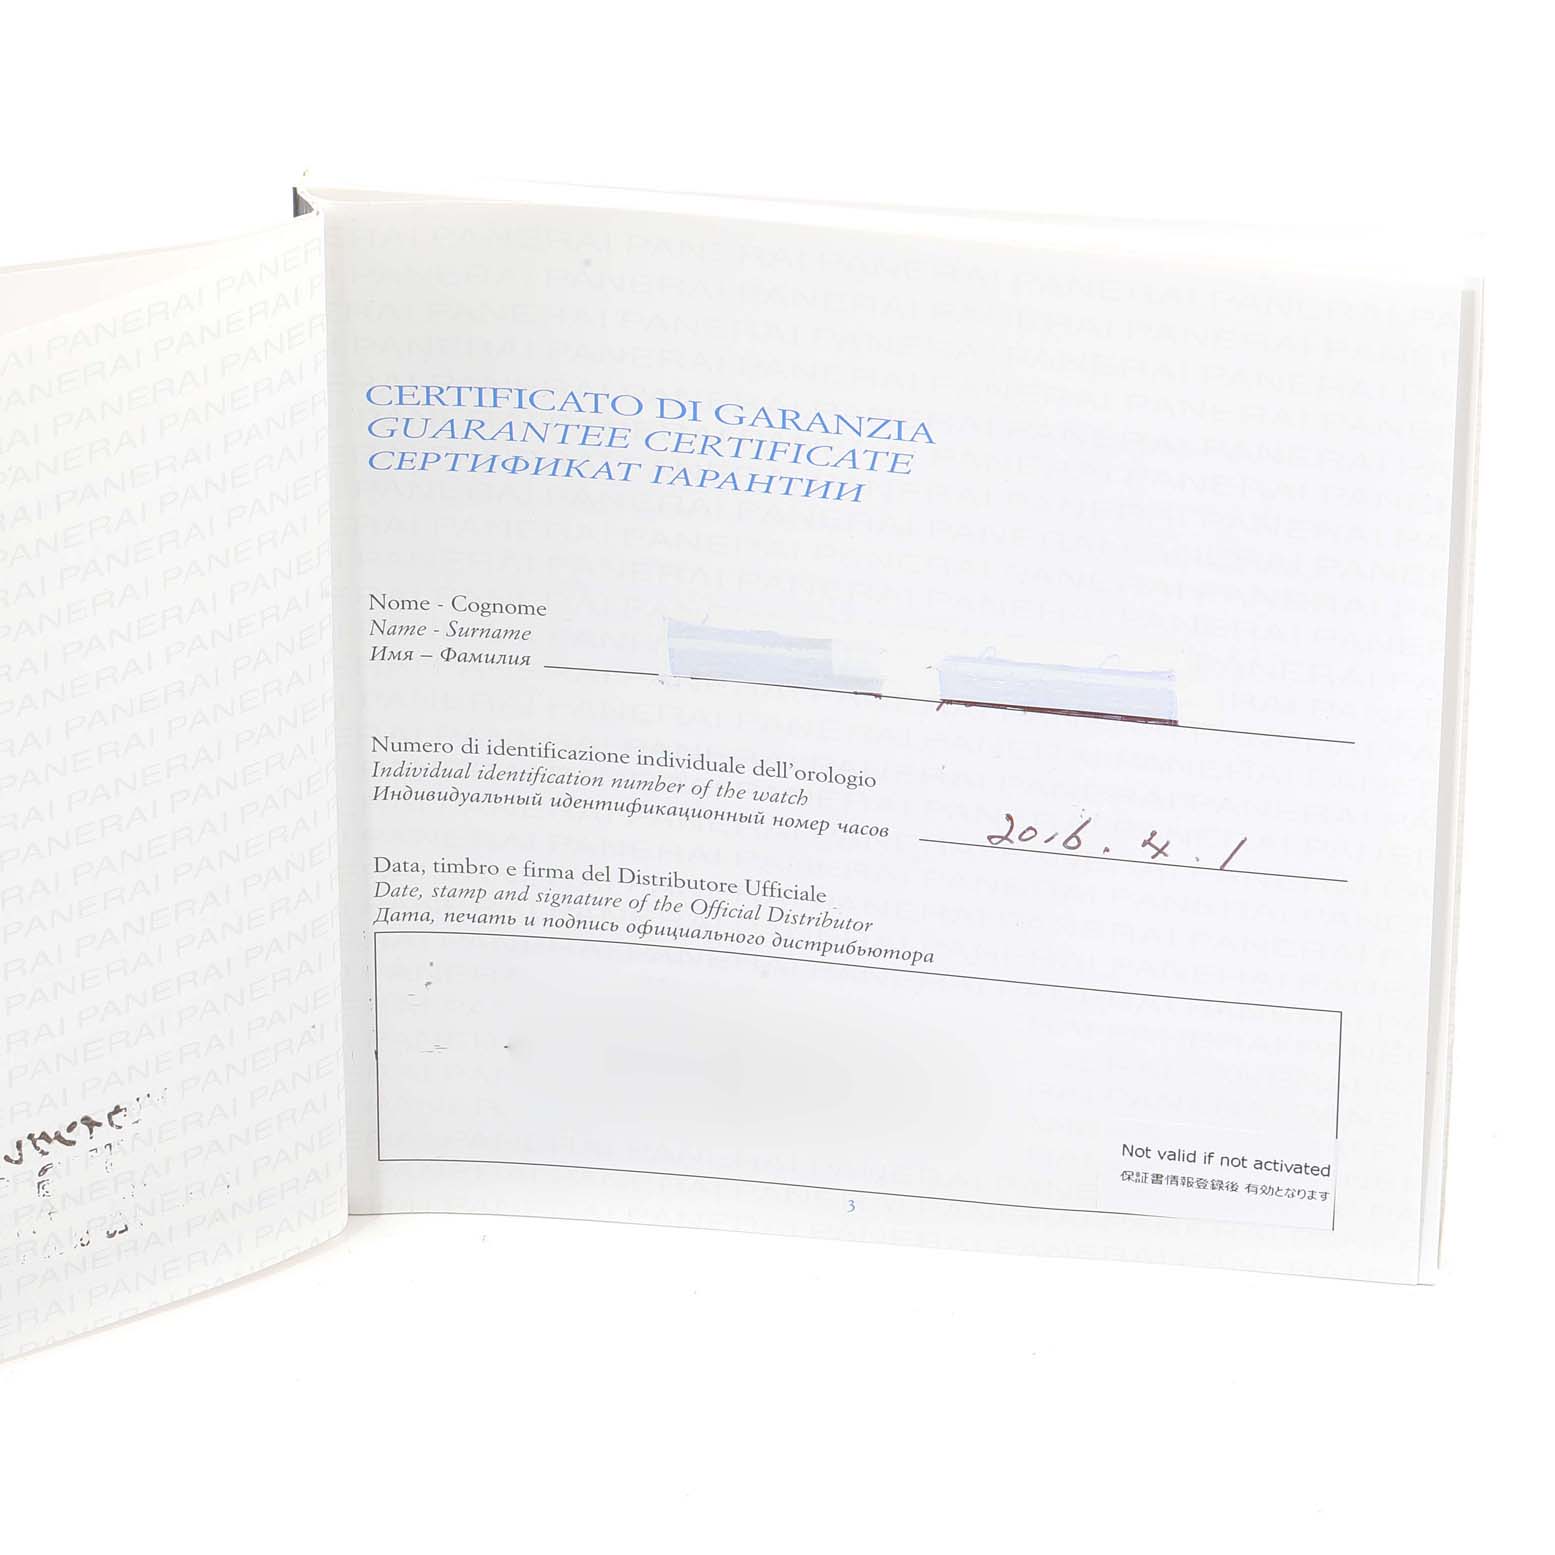 CERTIFICATO DI GARANZIA
GUARANTEE CERTIFICATE
СЕРТИФИКАТ ГАРАНТИИ
Nome - Cognome
Name - Surname
Имя – Фамилия
Numero di identificazione individuale dell'orologio
Individual identification number of the watch
Индивидуальный идентификационный номер часов 2016.4.1
Data, timbro e firma del Distributore Ufficiale
Date, stamp and signature of the Official Distributor
Дата, печать и подпись официального дистрибьютора
Not valid if not activated
保証書情報登録後 有効となります
3